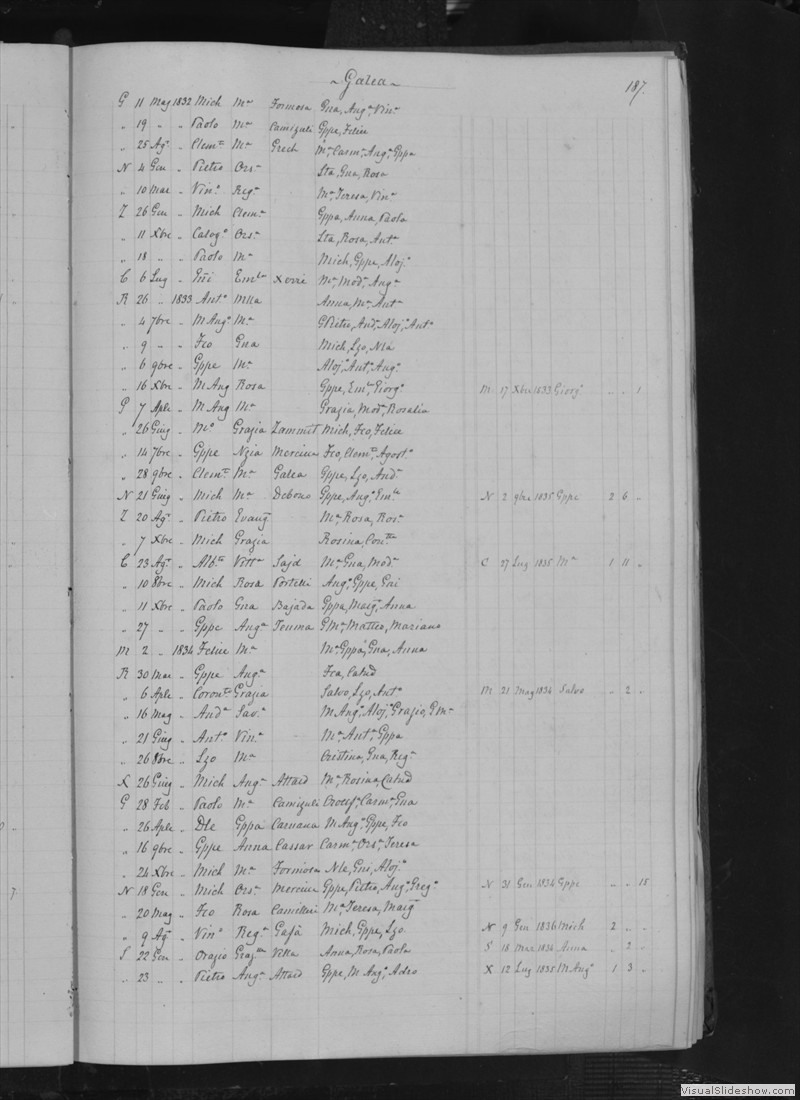 ~Galea~
187.
G 11 Mag 1832 Mich Mª Formosa Gna, Angª, Vinª
" 19 " " Paolo Mª Camizuli Gppe, Felice
" 25 Agº " Clemte Mª Grech Mª, Carmª, Angª, Gppa
N 4 Gen " Pietro Orsª Sta, Gna, Rosa
" 10 Mar " Vinº Regª Mª, Teresa, Vinª
Z 26 Gen " Mich Clemª Gppa, Anna, Paola
" 11 Xbre " Calogº Orsª Sta, Rosa, Antª
" 18 " " Paolo Mª Mich, Gppe, Alojª
C 6 Lug " Eml Xerri Mª, Modª, Angª
R 26 " 1833 Antº Mlla Anna, Mª, Antª
" 4 7bre " M Angº Mª GPietro, Andª, Alojº, Antº
" 9 " " Fco Gna Mich, Lzo, Nla
" 6 9bre " Gppe Mª Alojª, Antª, Angª
" 16 Xbre " M Ang Rosa Gppe, Emle, Giorgº M 17 Xbre 1833 Giorgº " " 1
G 7 Aple " M Ang Mª Grazia, Modª, Rosalia
" 26 Giug " Mº Grazia Zammit Mich, Fco, Felice
" 14 7bre " Gppe Nzia Mercieca Fco, Clemte, Agostº
" 28 9bre " Clemte Mª Galea Gppe, Lzo, Andª
N 21 Giug " Mich Mª Debono Gppe, Angº, Emle N 2 9bre 1835 Gppe 2 6 "
Z 20 Agº " Pietro Evang Mª, Rosa, Rosª
" 7 Xbre " Mich Grazia Rosina, Contta
C 23 Agº " Albto Vittª Sajd Mª, Gna, Modª C 27 Lug 1835 Mª 1 11 "
" 10 8bre " Mich Rosa Portelli Angº, Gppe, Gni
" 11 Xbre " Paolo Gna Bajada Gppa, Marg, Anna
" 27 " " Gppe Angª Teuma GMª, Matteo, Mariano
M 2 " 1834 Felice Mª Mª, Gppa, Gna, Anna
R 30 Mar " Gppe Angª Fca, Calud
" 6 Aple " Coronto Grazia Salvo, Lzo, Antª M 21 Mag 1834 Salvo " 2 "
" 16 Mag " Andª Savª M Angº, Alojº, Grazio, GMª
" 21 Giug " Antº Vinª Mª, Antª, Gppa
" 26 8bre " Lzo Mª Cristina, Gna, Regª
X 26 Giug " Mich Angª Attard Mª, Rosina, Calud
G 28 Feb " Paolo Mª Camizuli Crocifª, Carmª, Gna
" 26 Aple " Dle Gppa Caruana M Angº, Gppe, Fco
" 16 9bre " Gppe Anna Cassar Carmª, Orsª, Teresa
" 24 Xbre " Mich Mª Formosa Nle, Gni, Alojª
N 18 Gen " Mich Orsª Mercieca Gppe, Pietro, Angº, Gregº N 31 Gen 1834 Gppe " " 15
" 20 Mag " Fco Rosa Camilleri Mª, Teresa, Marg
" 9 Agº " Vinº Regª Gafà Mich, Gppe, Lzo N 9 Gen 1836 Mich 2 " "
S 22 Gen " Orazio Grazlla Vella Anna, Rosa, Paola S 18 Mar 1834 Anna " 2 "
" 23 " " Pietro Angª Attard Gppe, M Angº, Adeo X 12 Lug 1835 M Angº 1 3 "
VisualSlideshow.com